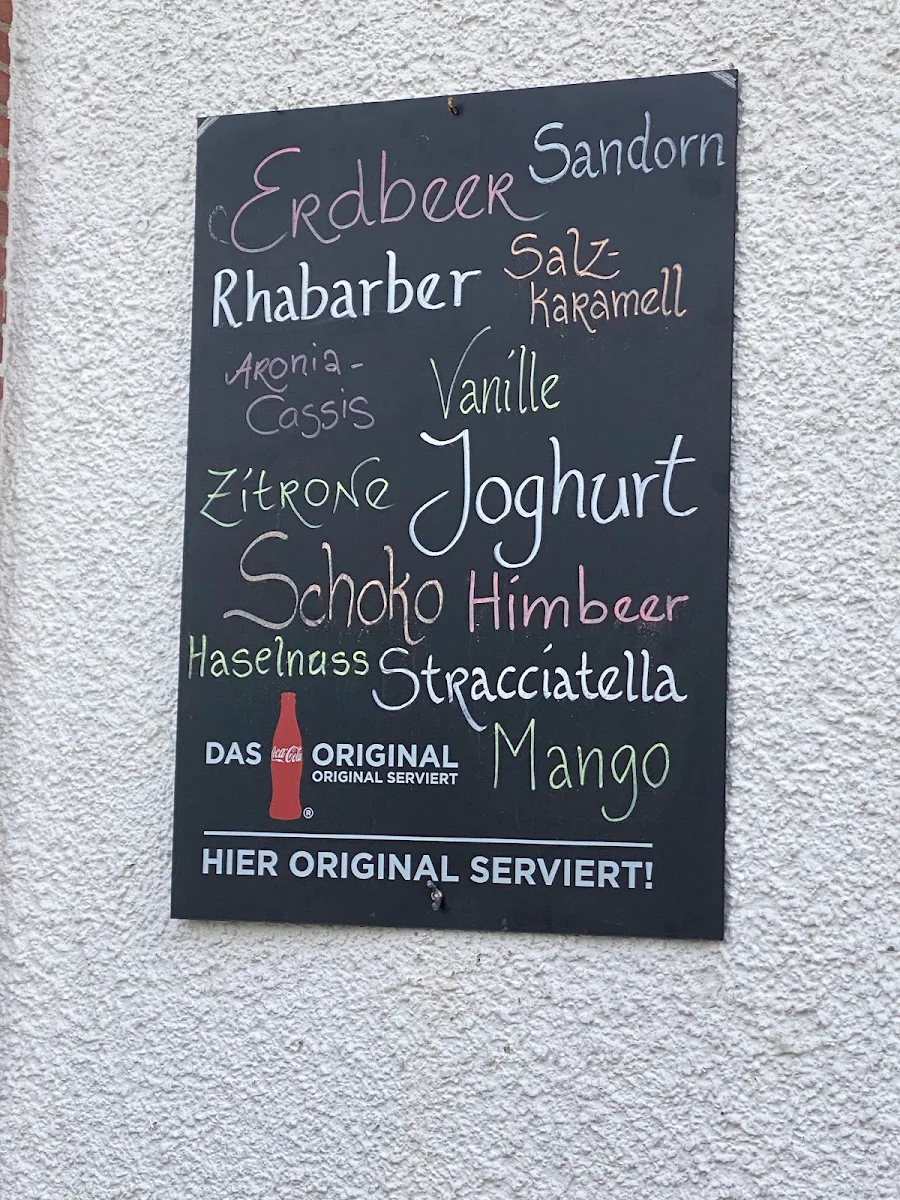 Erdbeer
Sandorn
Rhabarber
Salz-
karamell
Aronia-
Cassis
Vanille
Zitrone
Joghurt
Schoko
Himbeer
Haselnuss
Stracciatella
Mango
DAS Coca-Cola ORIGINAL
ORIGINAL SERVIERT
®
HIER ORIGINAL SERVIERT!